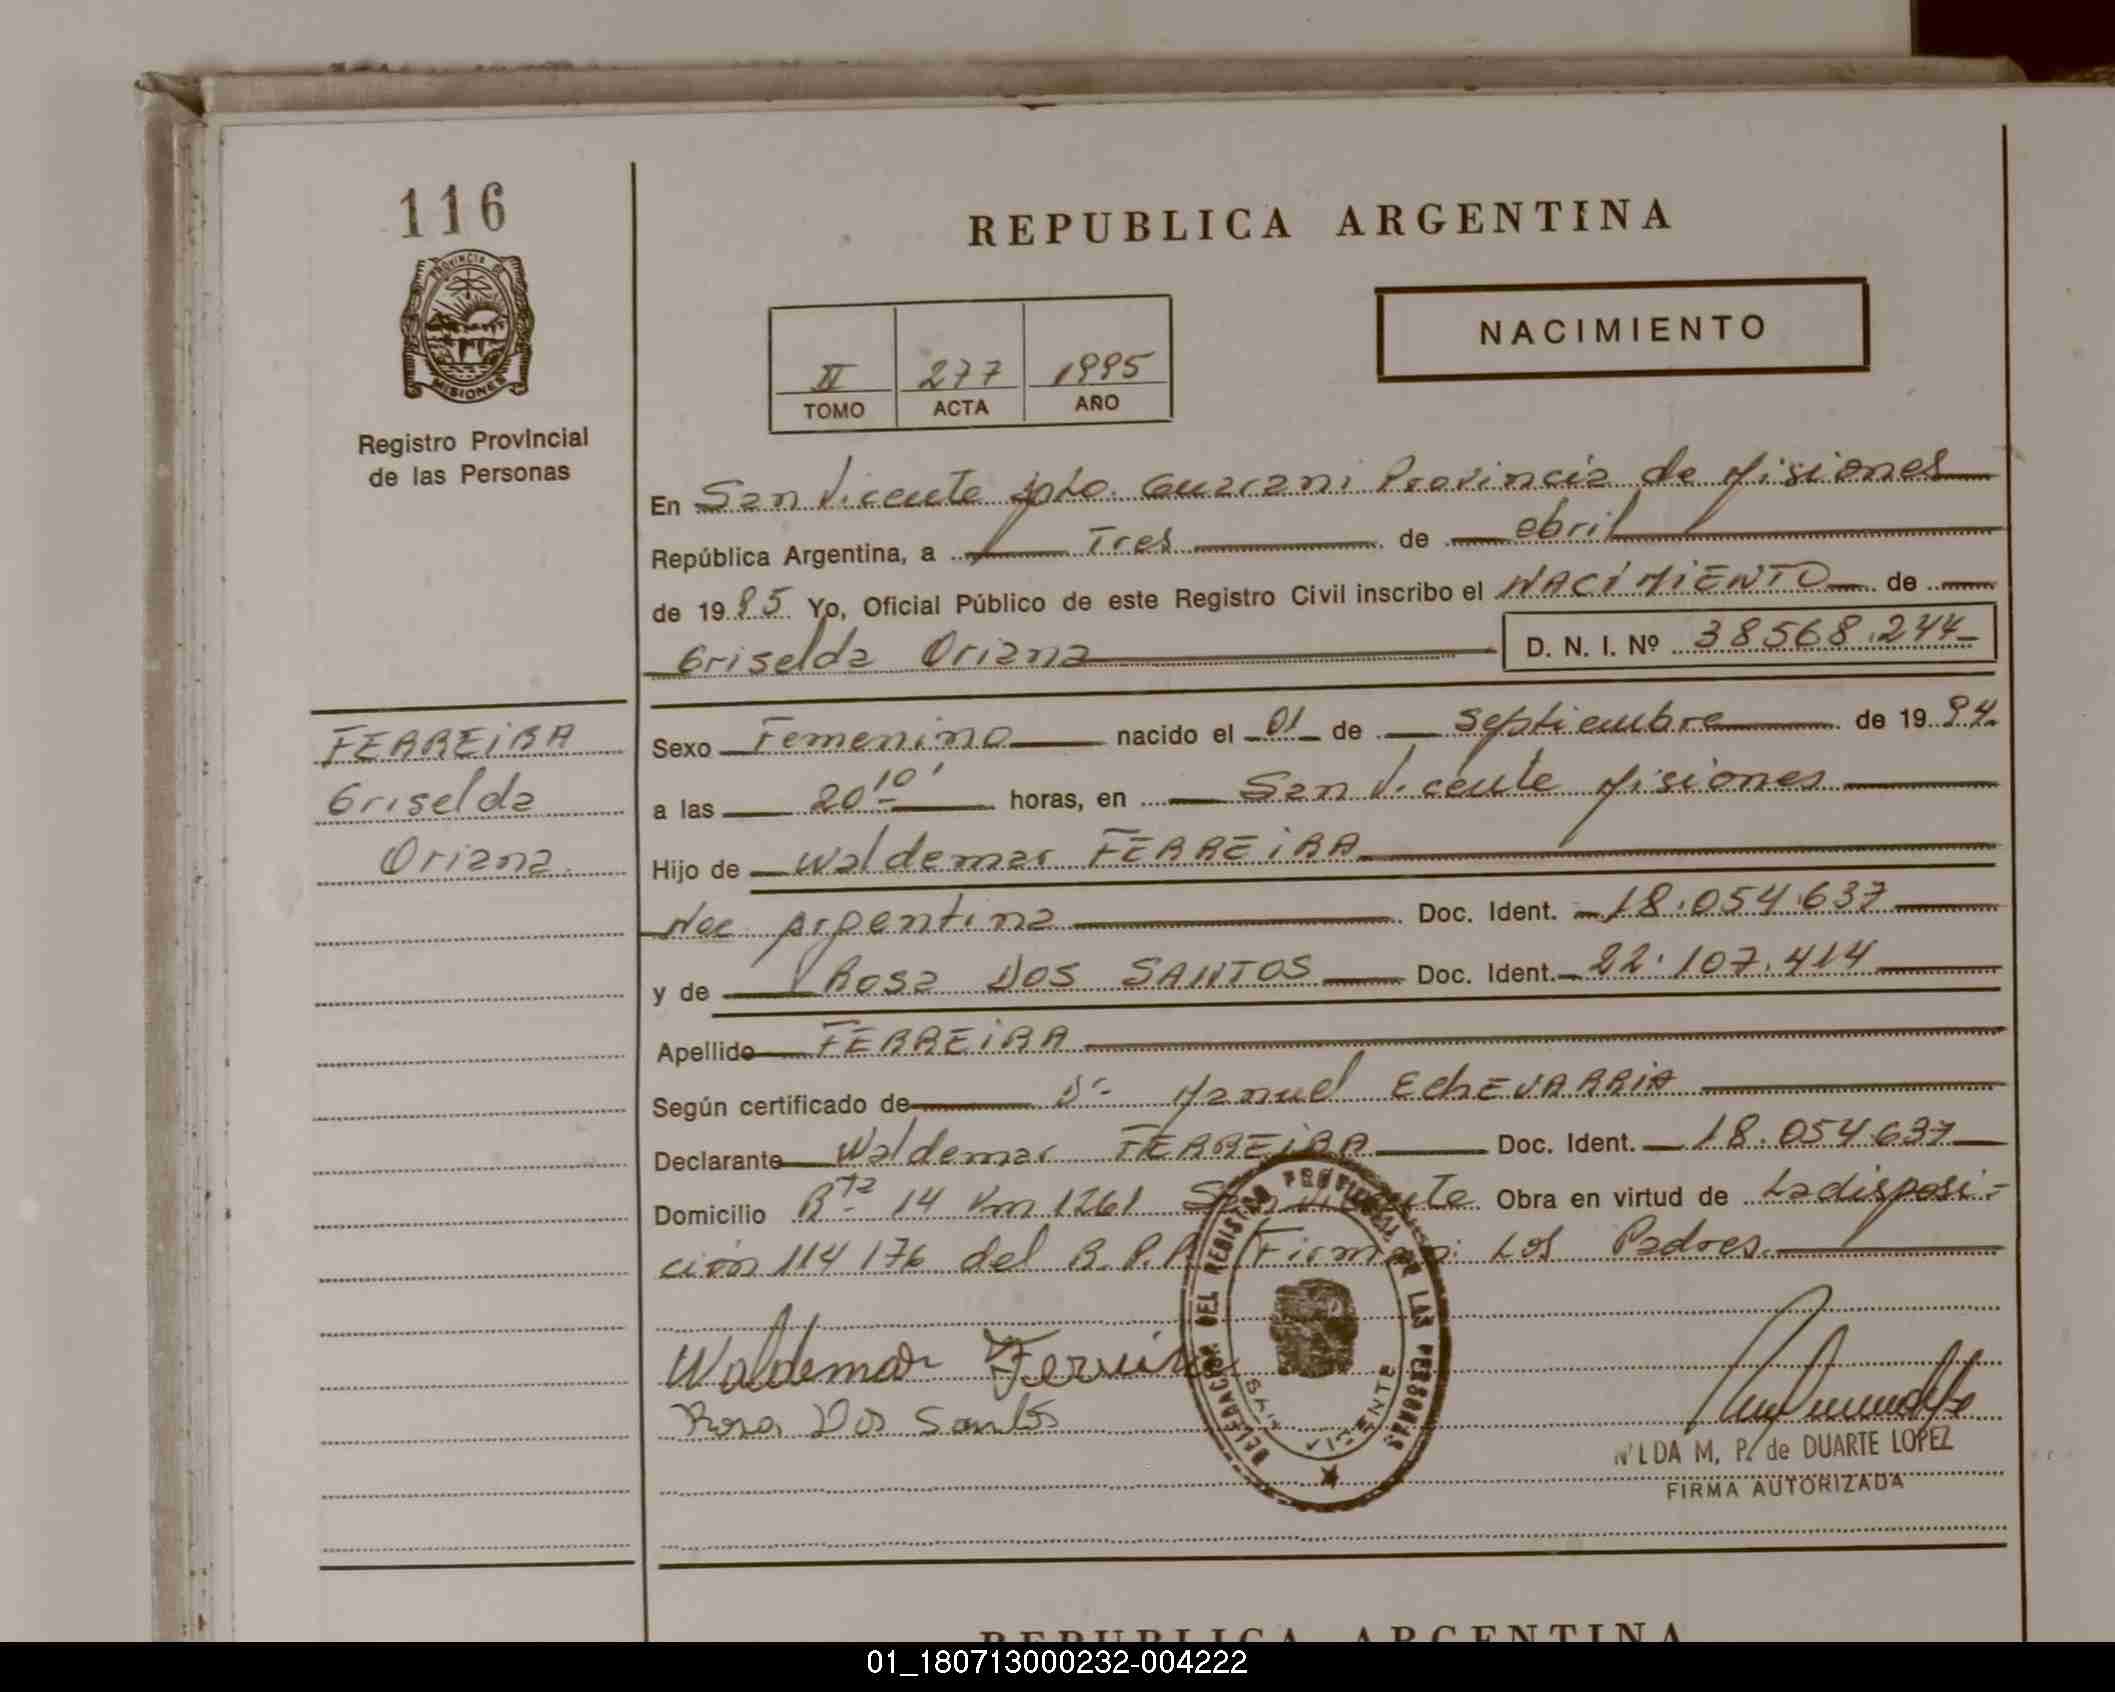 116
PROVINCIA DE
MISIONES
Registro Provincial
de las Personas
FERREIRA
Griselda
Oriana
REPUBLICA ARGENTINA
NACIMIENTO
II 277 1995
TOMO ACTA AÑO
En San Vicente dpto. Guarani Provincia de Misiones
República Argentina, a Tres de abril
de 1995 Yo, Oficial Público de este Registro Civil inscribo el NACIMIENTO de
Griselda Oriana D. N. I. Nº 38568.244
Sexo Femenino nacido el 01 de septiembre de 1994
a las 20 10' horas, en San Vicente Misiones
Hijo de Waldemar FERREIRA
Nac. Argentina Doc. Ident. 18.054.637
y de Rosa DOS SANTOS Doc. Ident. 22.107.414
Apellido FERREIRA
Según certificado de Dr. Manuel EchEVARRIA
Declarante Waldemar FERREIRA Doc. Ident. 18.054637
Domicilio Rta 14 Km 1261 San Vicente Obra en virtud de La disposi-
ción 114 176 del R.P.P. Firman: Los Padres.
Waldemar Ferreira
Rosa Dos Santos
DELEGACION DEL REGISTRO PROVINCIAL DE LAS PERSONAS
SAN VICENTE
M. P. de DUARTE LOPEZ
FIRMA AUTORIZADA
REPUBLICA ARGENTINA
01_180713000232-004222